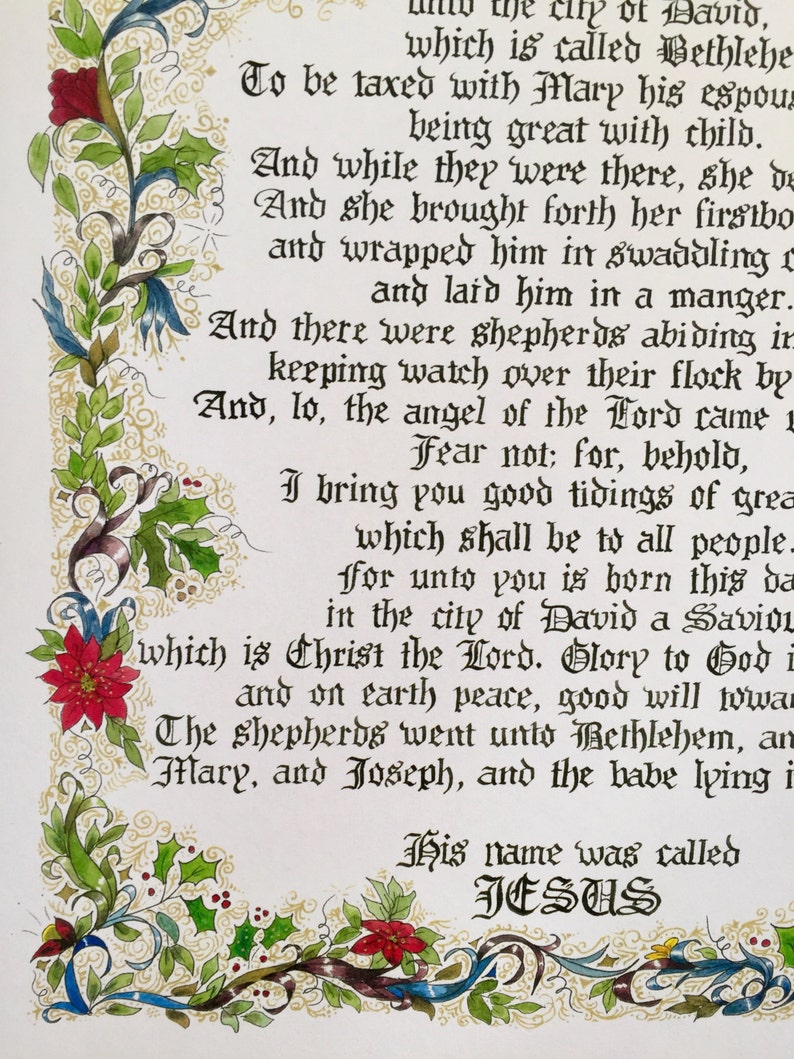 unto the city of David,
which is called Bethlehe
To be taxed with Mary his espous
being great with child.
And while they were there, she de
And she brought forth her firstbo
and wrapped him in swaddling c
and laid him in a manger.
And there were shepherds abiding in
keeping watch over their flock by
And, lo, the angel of the Lord came u
Fear not: for, behold,
I bring you good tidings of grea
which shall be to all people.
For unto you is born this da
in the city of David a Saviou
which is Christ the Lord. Glory to God i
and on earth peace, good will towar
The shepherds went unto Bethlehem, an
Mary, and Joseph, and the babe lying i
His name was called
JESUS